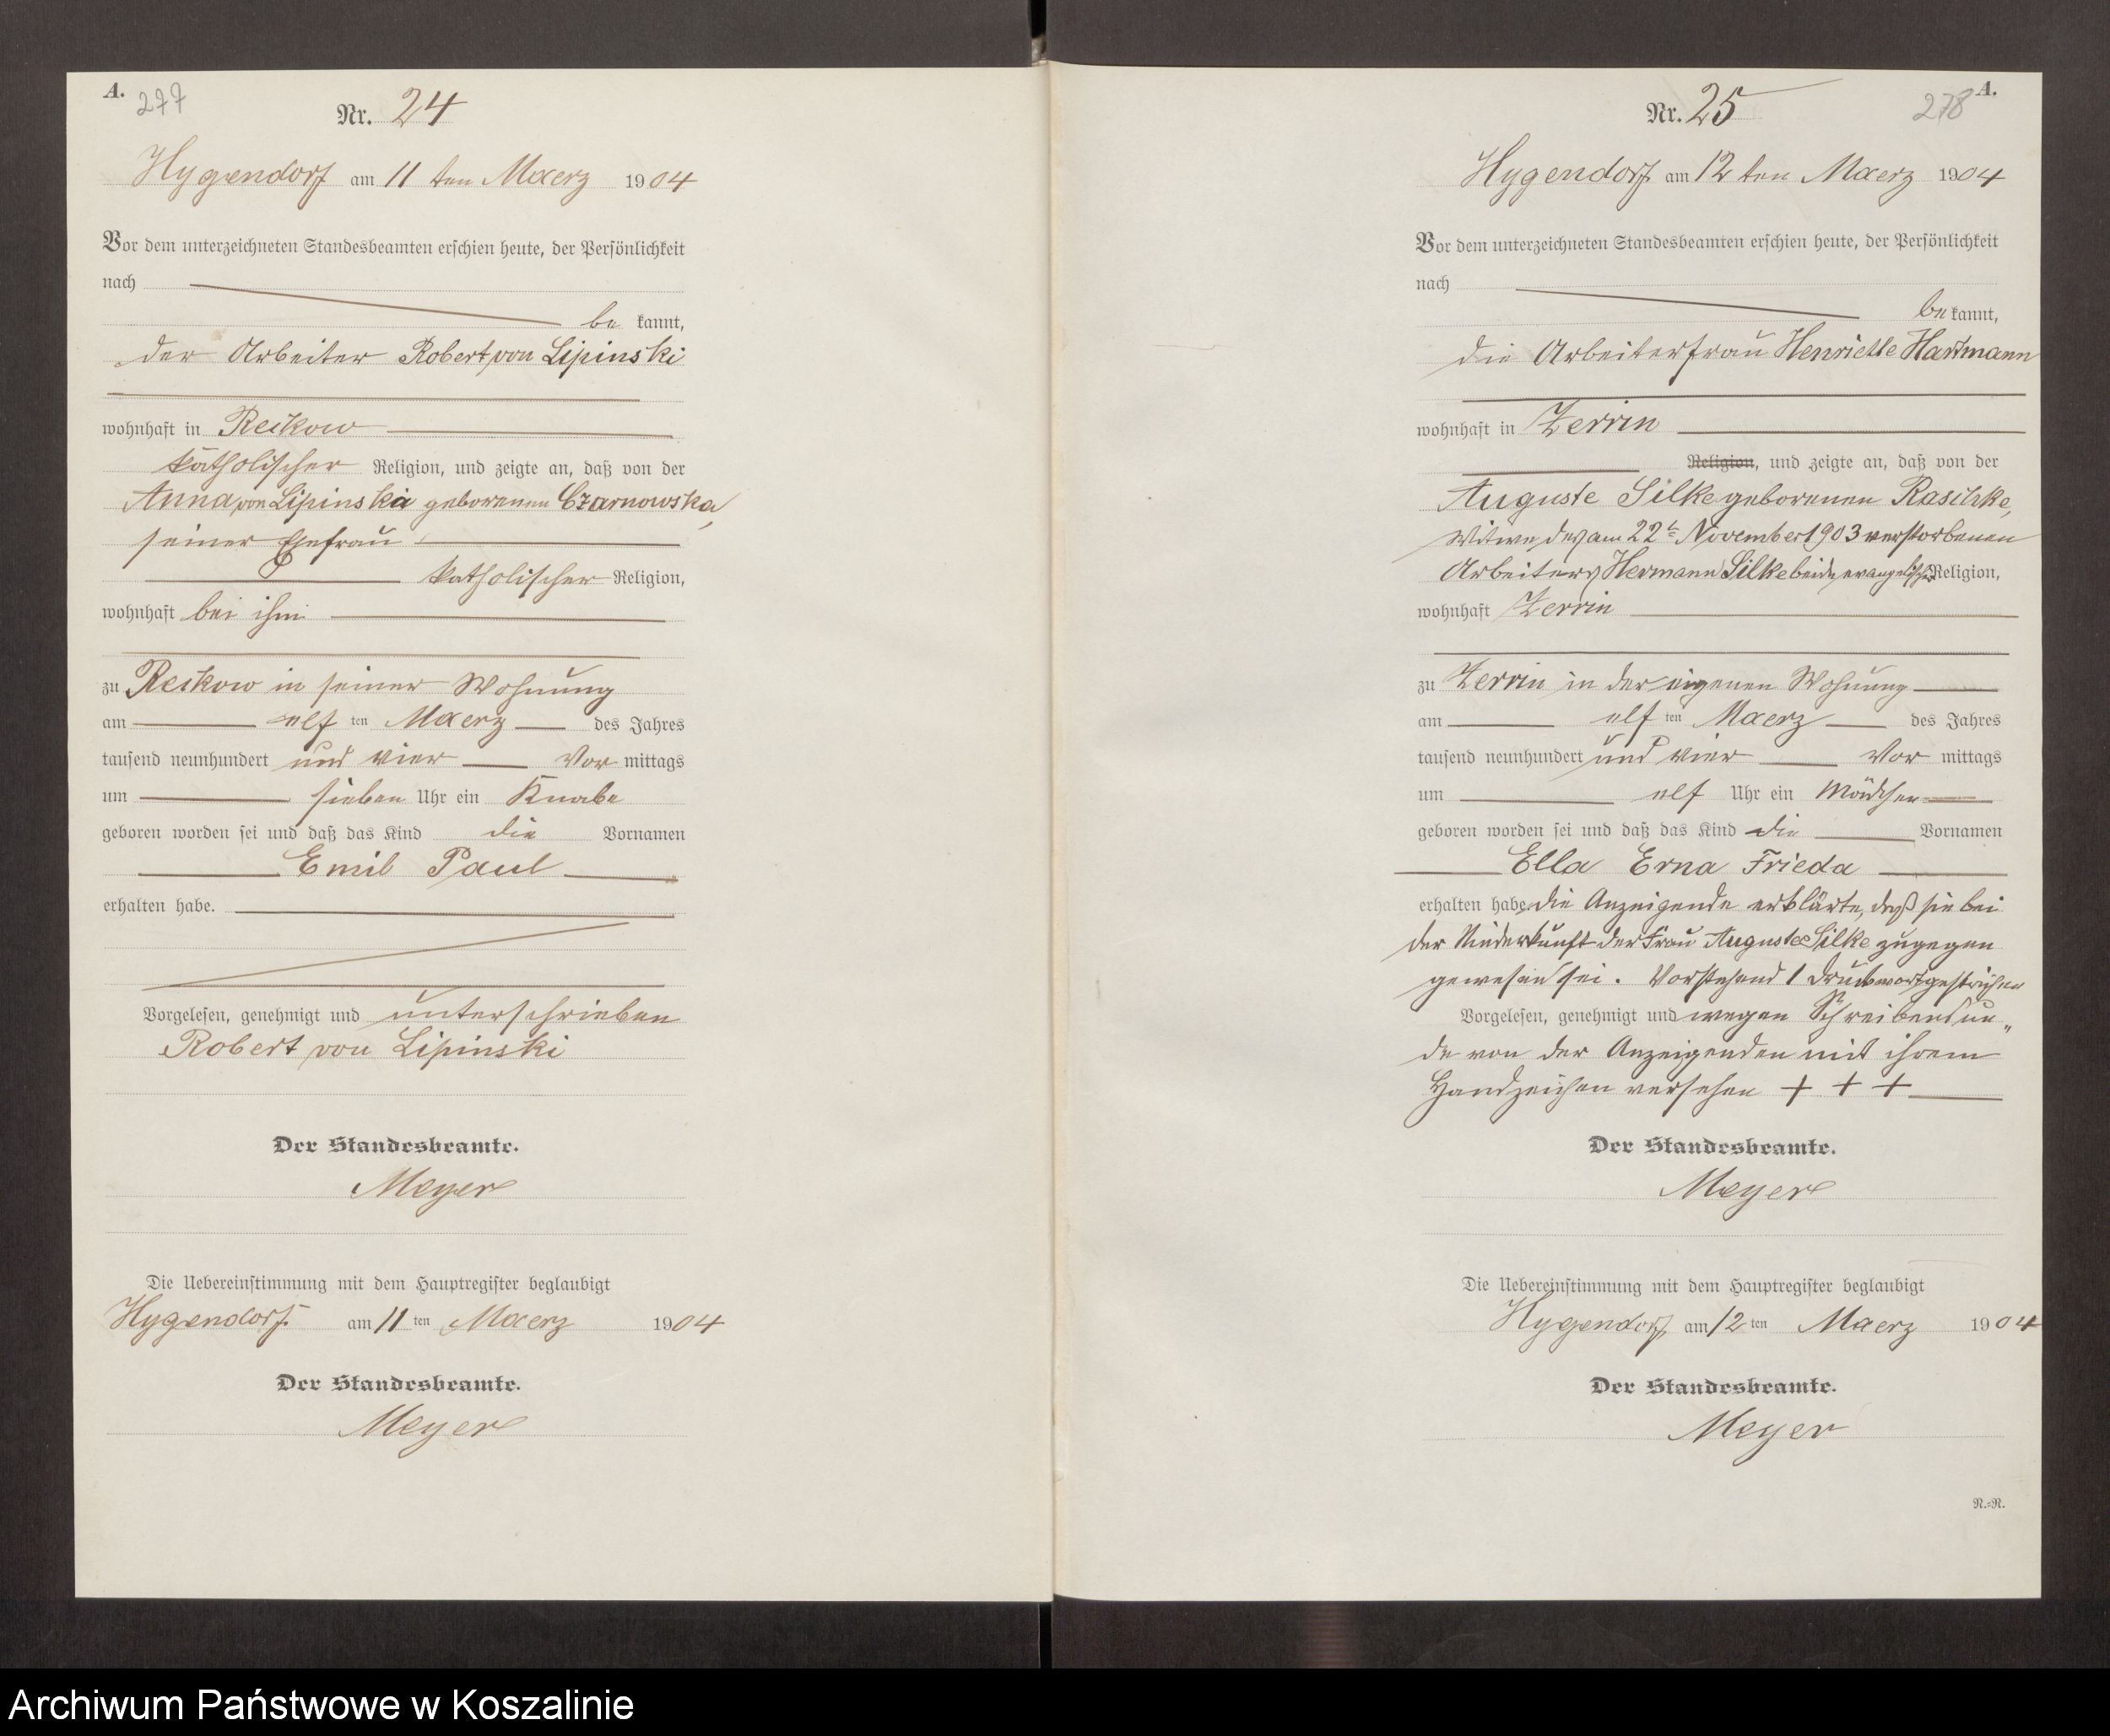 A.
277
Nr. 24
Hygendorf am 11 ten Maerz 1904
Vor dem unterzeichneten Standesbeamten erschien heute, der Persönlichkeit
nach
be kannt,
der Arbeiter Robert von Lipinski
wohnhaft in Reckow
katholischer Religion, und zeigte an, daß von der
Anna von Lipinska geborenen Czarnowska,
seiner Ehefrau
katholischer Religion,
wohnhaft bei ihm
zu Reckow in seiner Wohnung
am elf ten Maerz des Jahres
tausend neunhundert und vier Vor mittags
um sieben Uhr ein Knabe
geboren worden sei und daß das Kind die Vornamen
Emil Paul
erhalten habe.
Vorgelesen, genehmigt und unterschrieben
Robert von Lipinski
Der Standesbeamte.
Meyer
Die Uebereinstimmung mit dem Hauptregister beglaubigt
Hygendorf am 11 ten Maerz 1904
Der Standesbeamte.
Meyer
278 A.
Nr. 25
Hygendorf am 12 ten Maerz 1904
Vor dem unterzeichneten Standesbeamten erschien heute, der Persönlichkeit
nach
be kannt,
die Arbeiterfrau Henriette Hartmann
wohnhaft in Zerrin
Religion, und zeigte an, daß von der
Auguste Silke geborenen Raschke,
Witwe des am 22t November 1903 verstorbenen
Arbeiters Hermann Silke beide evangelischer Religion,
wohnhaft Zerrin
zu Zerrin in der eigenen Wohnung
am elf ten Maerz des Jahres
tausend neunhundert und vier Vor mittags
um elf Uhr ein Mädchen
geboren worden sei und daß das Kind die Vornamen
Ella Erna Frieda
erhalten habe. die Anzeigende erklärte, daß sie bei
der Niederkunft der Frau Auguste Silke zugegen
gewesen sei. Vorstehend 1 Druckwort gestrichen
Vorgelesen, genehmigt und wegen Schreibensun„
de von der Anzeigenden mit ihrem
Handzeichen versehen + + +
Der Standesbeamte.
Meyer
Die Uebereinstimmung mit dem Hauptregister beglaubigt
Hygendorf am 12 ten Maerz 1904
Der Standesbeamte.
Meyer
N.=R.
Archiwum Państwowe w Koszalinie